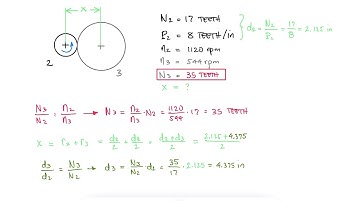 x
2
3
N₂ = 17 TEETH
P₂ = 8 TEETH/in
n₂ = 1120 rpm
n₃ = 544 rpm
N₃ = 35 TEETH
x = ?
d₂ = N₂/P₂ = 17/8 = 2.125 in
N₃/N₂ = n₂/n₃ → N₃ = n₂/n₃ · N₂ = 1120/544 · 17 = 35 TEETH
x = r₂ + r₃ = d₂/2 + d₃/2 = (d₂+d₃)/2 = (2.125+4.375)/2
d₃/d₂ = N₃/N₂ → d₃ = N₃/N₂ · d₂ = 35/17 · 2.125 = 4.375 in